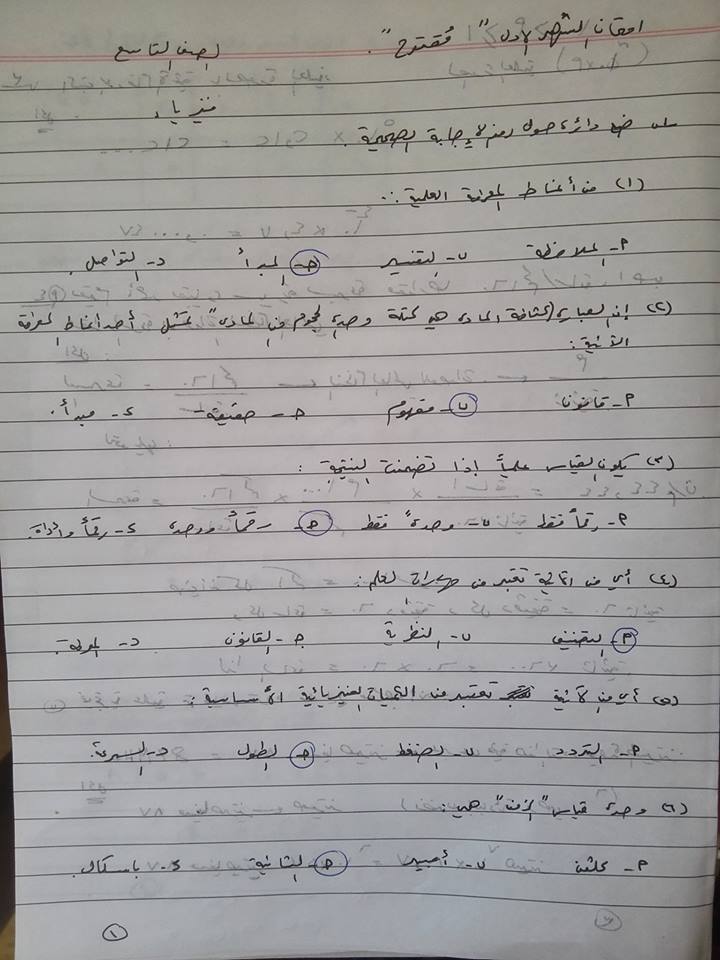 امتحان الشهر الاول "مُقترح".
الصف التاسع
فيزياء
س١: ضع دائرة حول رمز الإجابة الصحيحة.
(١) من أنماط المعرفة العلمية:
أ- الملاحظة ب- التفسير ج- المبدأ د- التواصل.
(٢) إن العبارة "الكثافة المادة هي كتلة وحدة الحجوم من المادة" تمثل أحد أنماط المعرفة
الآتية:
أ- قانون ب- مفهوم ج- حقيقة د- مبدأ.
(٣) يكون القياس علمياً إذا تضمنت النتيجة:
أ- رقماً فقط ب- وحدةً فقط ج- رقماً ووحدة د- رقماً وأداة.
(٤) أي من التالية تعتبر من مهارات العلم:
أ- التصنيف ب- النظرية ج- القانون د- المعرفة.
(٥) أي من الآتية تعتبر من الكميات الفيزيائية الأساسية:
أ- التردد ب- الضغط ج- الطول د- السرعة.
(٦) وحدة قياس "الزمن" هي:
أ- كلفن ب- أمبير ج- الثانية د- باسكال.
١